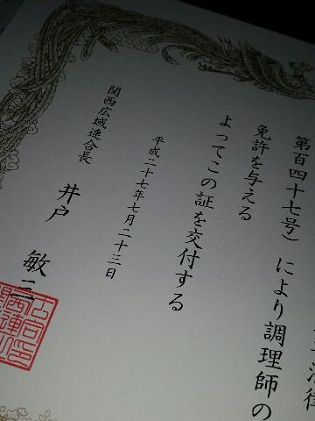 法律
第百四十七号）により調理師の
免許を与える
よってこの証を交付する
平成二十七年七月二十三日
関西広域連合長
井戸 敏三